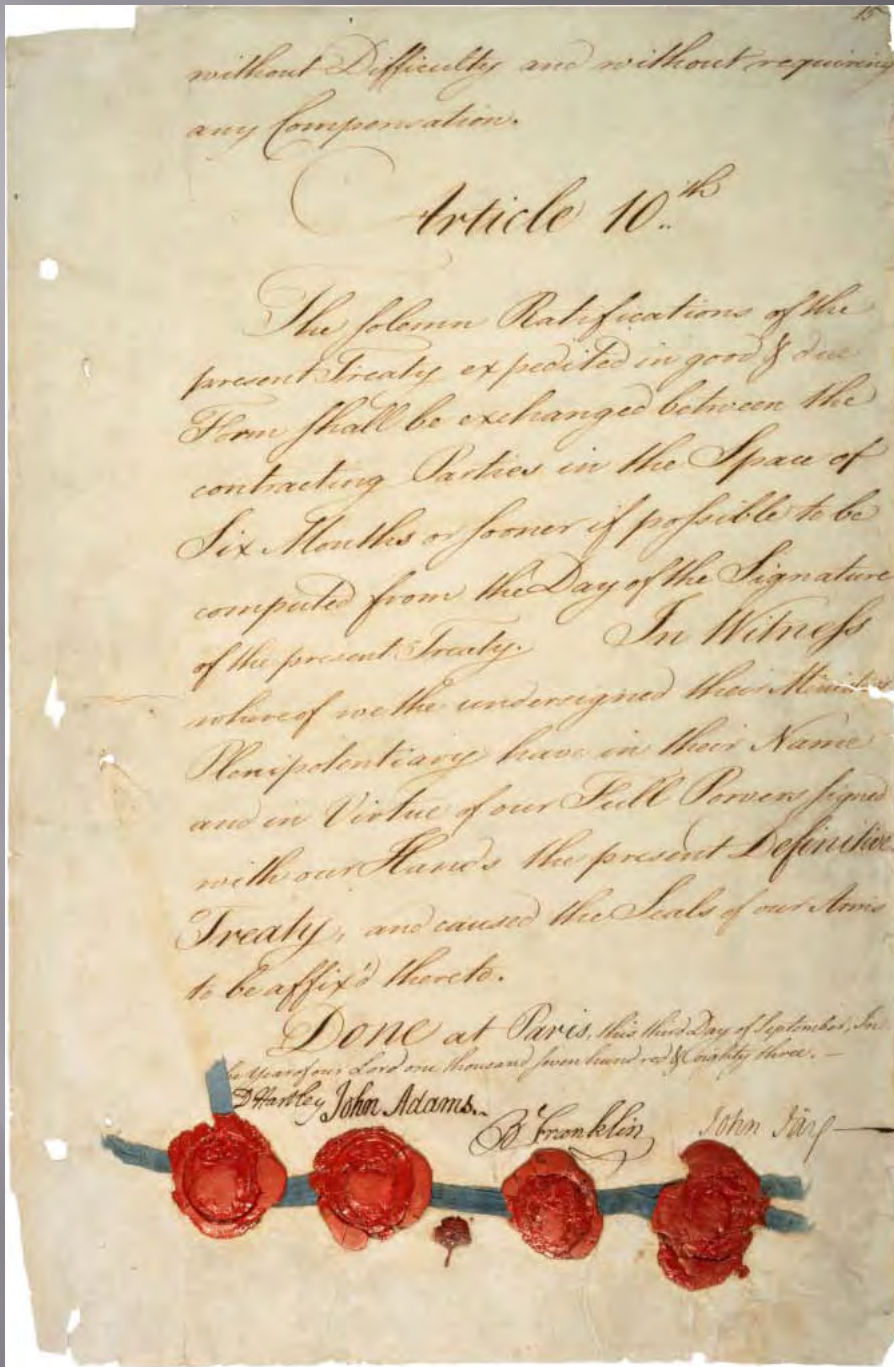 15
without Difficulty and without requiring
any Compensation.
Article 10.th
The solemn Ratifications of the
present Treaty expedited in good & due
Form shall be exchanged between the
contracting Parties in the Space of
Six Months or sooner if possible to be
computed from the Day of the Signature
of the present Treaty. In Witness
whereof we the undersigned their Ministers
Plenipotentiary have in their Name
and in Virtue of our Full Powers signed
with our Hands the present Definitive
Treaty, and caused the Seals of our Arms
to be affix'd thereto.
Done at Paris, this third Day of September, In
the Year of our Lord one thousand seven hundred & eighty three. —
D Hartley John Adams. B Franklin John Jay —